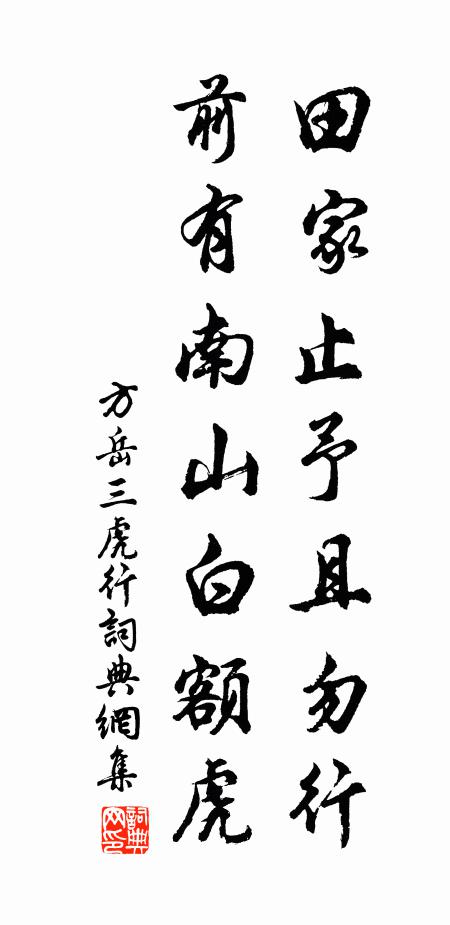 田家止予且勿行
前有南山白額虎
方岳三虎行詞典網集
詞典網印